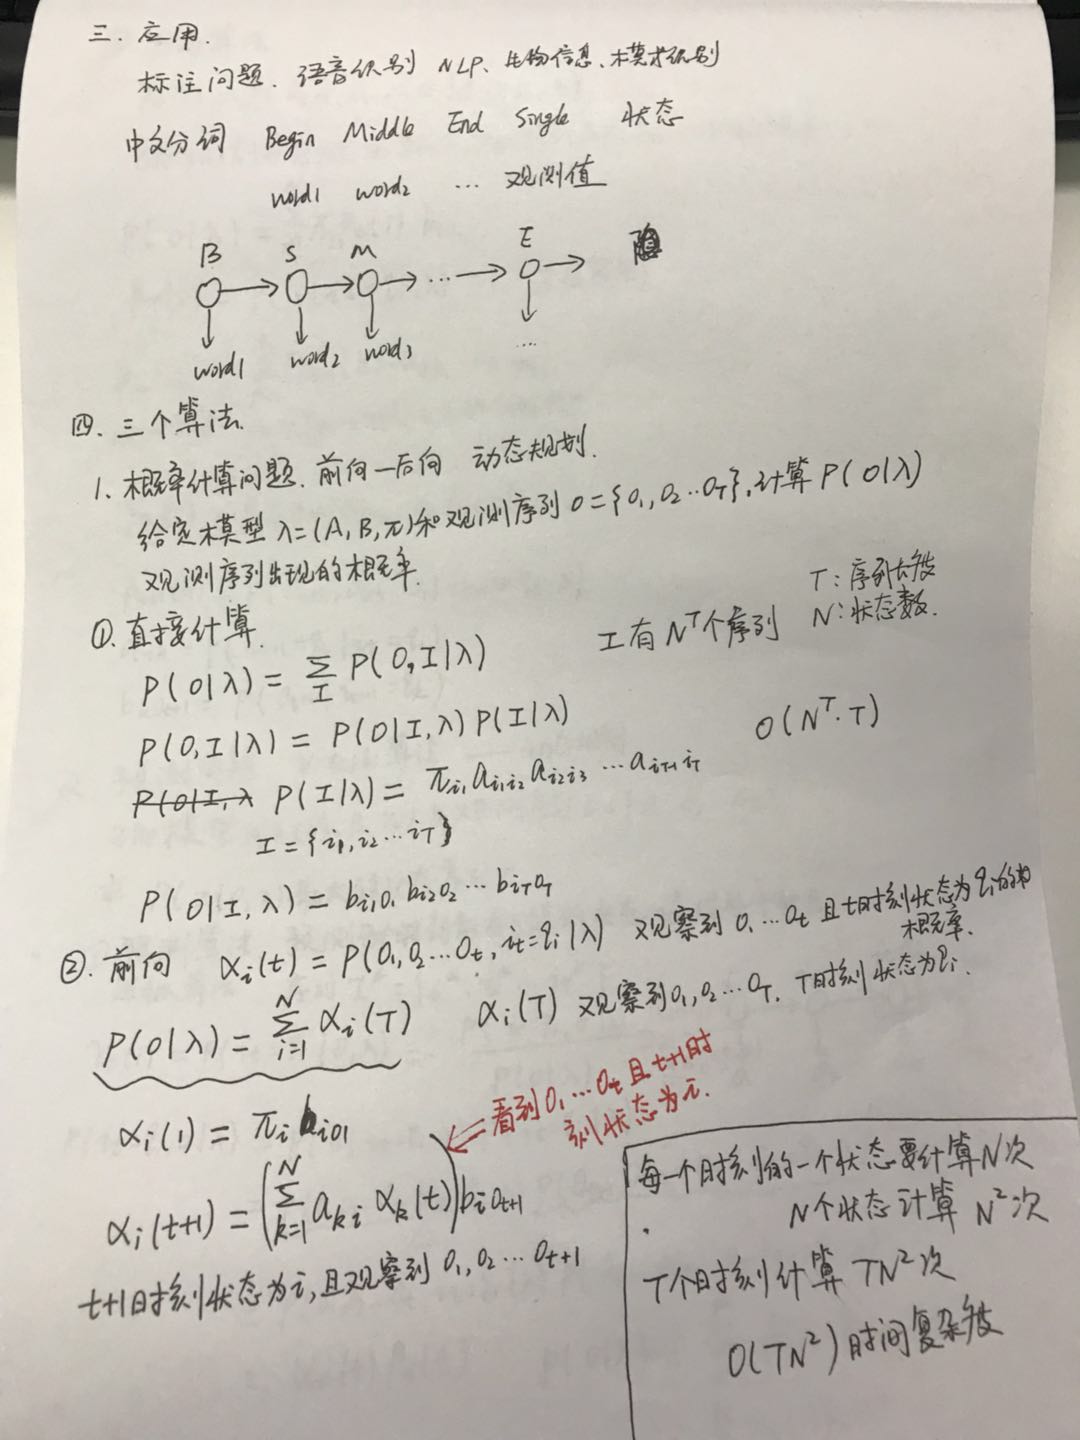 三. 应用.
标注问题. 语音识别 NLP、生物信息、模式识别
中文分词 Begin Middle End Single 状态
word1 word2 ... 观测值
B S M E
word1 word2 word3 ...
四. 三个算法.
1. 概率计算问题. 前向-后向 动态规划.
给定模型 λ=(A,B,π)和观测序列 O={O₁,O₂…O_T},计算 P(O|λ)
观测序列出现的概率.
T: 序列长度
N: 状态数.
①. 直接计算.
I有 N^T个序列
P(O|λ) = Σ_I P(O,I|λ)
P(O,I|λ) = P(O|I,λ) P(I|λ)
O(N^T·T)
P(O|I,λ P(I|λ) = π_{i₁} a_{i₁i₂} a_{i₂i₃} … a_{i_{T-1}i_T}
I = {i₁,i₂…i_T}
P(O|I,λ) = b_{i₁O₁} b_{i₂O₂} … b_{i_TO_T}
②. 前向 α_i(t) = P(O₁,O₂…O_t, i_t=q_i|λ) 观察到 O₁…O_t 且t时刻状态为q_i的
概率.
P(O|λ) = Σ_{i=1}^N α_i(T) α_i(T) 观察到O₁,O₂…O_T. T时刻状态为q_i.
看到O₁…O_t且t+1时
刻状态为i.
α_i(1) = π_i b_{iO1}
α_i(t+1) = (Σ_{k=1}^N a_{ki} α_k(t)) b_{iO_{t+1}}
t+1时刻状态为i,且观察到 O₁,O₂…O_{t+1}
每一个时刻的一个状态要计算N次
N个状态计算 N²次
T个时刻计算 TN²次
O(TN²)时间复杂度